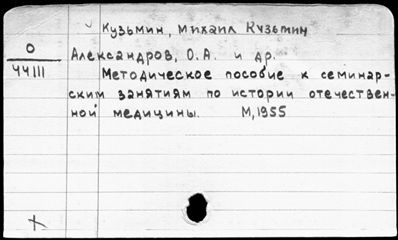 Кузьмин, Михаил Кузьмич
О
44111
Александров, О.А. и др.
Методическое пособие к семинар-
ским занятиям по истории отечествен-
ной медицины. М, 1955